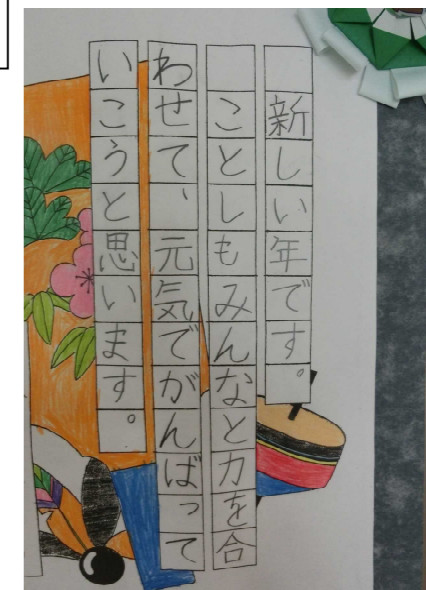 新しい年です。
ことしもみんなと力を合
わせて、元気でがんばって
いこうと思います。